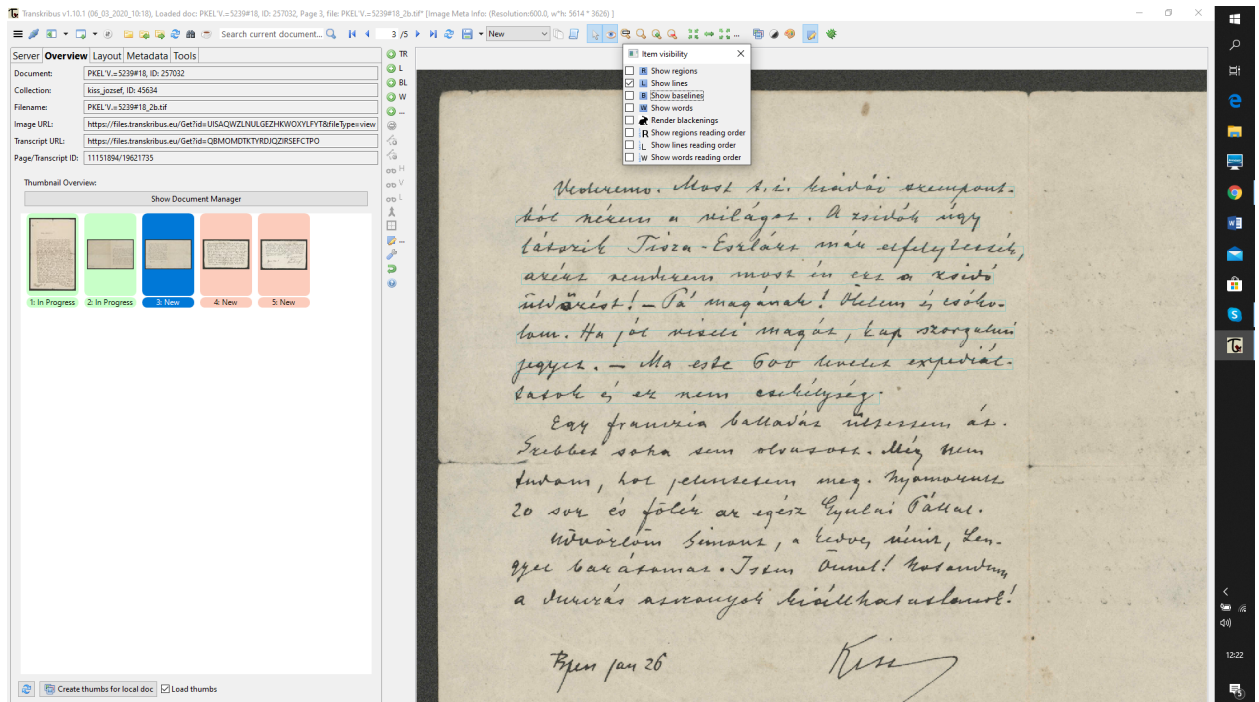 Transkribus v1.10.1 (06_03_2020_10:18), Loaded doc: PKEL'V.=5239#18, ID: 257032, Page 3, file: PKEL'V.=5239#18_2b.tif* [Image Meta Info: (Resolution:600.0, w*h: 5614 * 3626) ]
Search current document... 3 /5 New
Server Overview Layout Metadata Tools
Document: PKEL'V.=5239#18, ID: 257032
Collection: kiss_jozsef, ID: 45634
Filename: PKEL'V.=5239#18_2b.tif
Image URL: https://files.transkribus.eu/Get?id=UISAQWZLNULGEZHKWOXYLFYT&fileType=view
Transcript URL: https://files.transkribus.eu/Get?id=QBMOMDTKTYRDJQZIRSEFCTPO
Page/Transcript ID: 11151894/19621735
Thumbnail Overview:
Show Document Manager
1: In Progress 2: In Progress 3: New 4: New 5: New
Create thumbs for local doc Load thumbs
TR
L
BL
W
...
H
V
L
Item visibility
R Show regions
L Show lines
B Show baselines
W Show words
Render blackenings
R Show regions reading order
L Show lines reading order
W Show words reading order
Vederemo. Most t.i. kiadói szempont-
ból nézem a világot. A zsidók úgy
látszik Tisza-Eszlárt már elfelejtették,
azért rendezem most én ezt a zsidó
üldözést! – Pá magának! Ölelem és csóko-
lom. Ha jól viseli magát, kap szorgalmi
jegyet. – Ma este 600 levelet expediál-
tatok és ez nem csekélység.
Egy franczia balladát ültettem át.
Szebbet soha sem olvasott. Még nem
tudom, hol jelentetem meg. Nyomorult
20 sor és fölér az egész Gyulai Pállal.
Üdvözlöm Simont, a kedves nénit, Len-
gyel barátomat. Isten Önnel!
a asszonyok kiállhatatlanok!
jan 26 Kiss
12:22